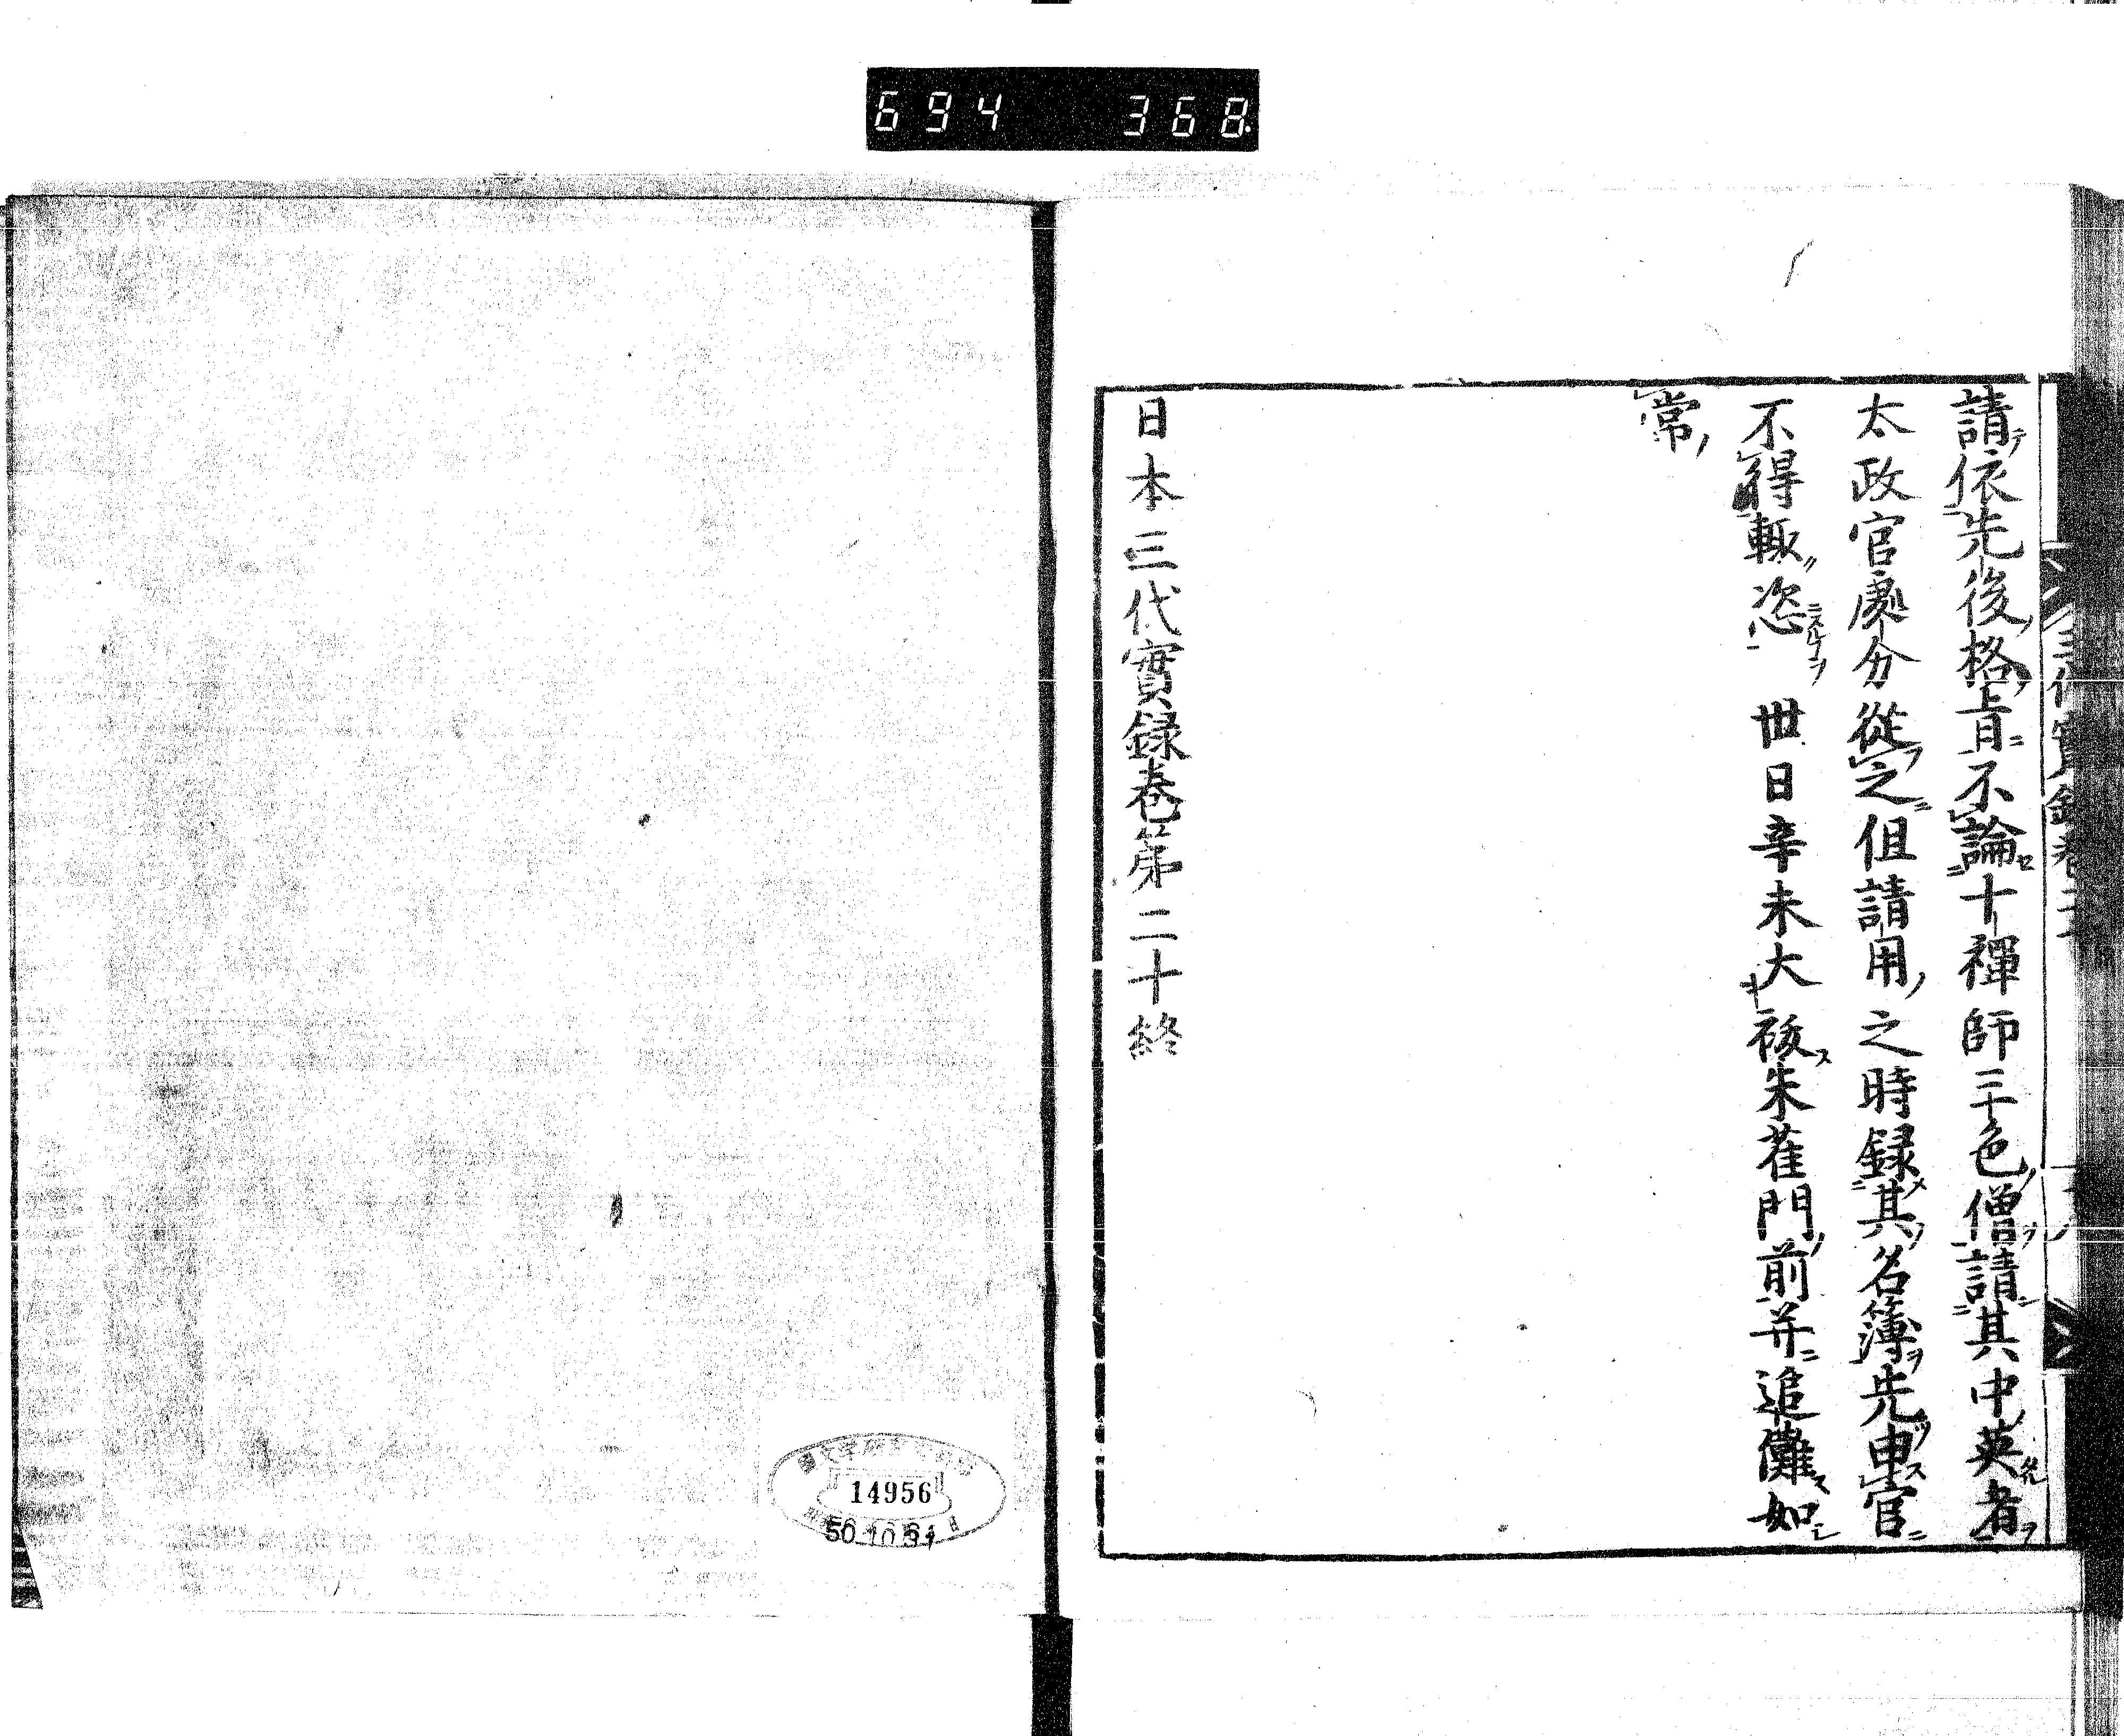 694 368
請依先後格旨不論十禪師三十色僧請其中英者
太政官處分從之但請用之時録其名簿先申官
不得輙恣 丗日辛未大祓朱雀門前并追儺如
常
日本三代實録卷第二十終
14956
50.10.31